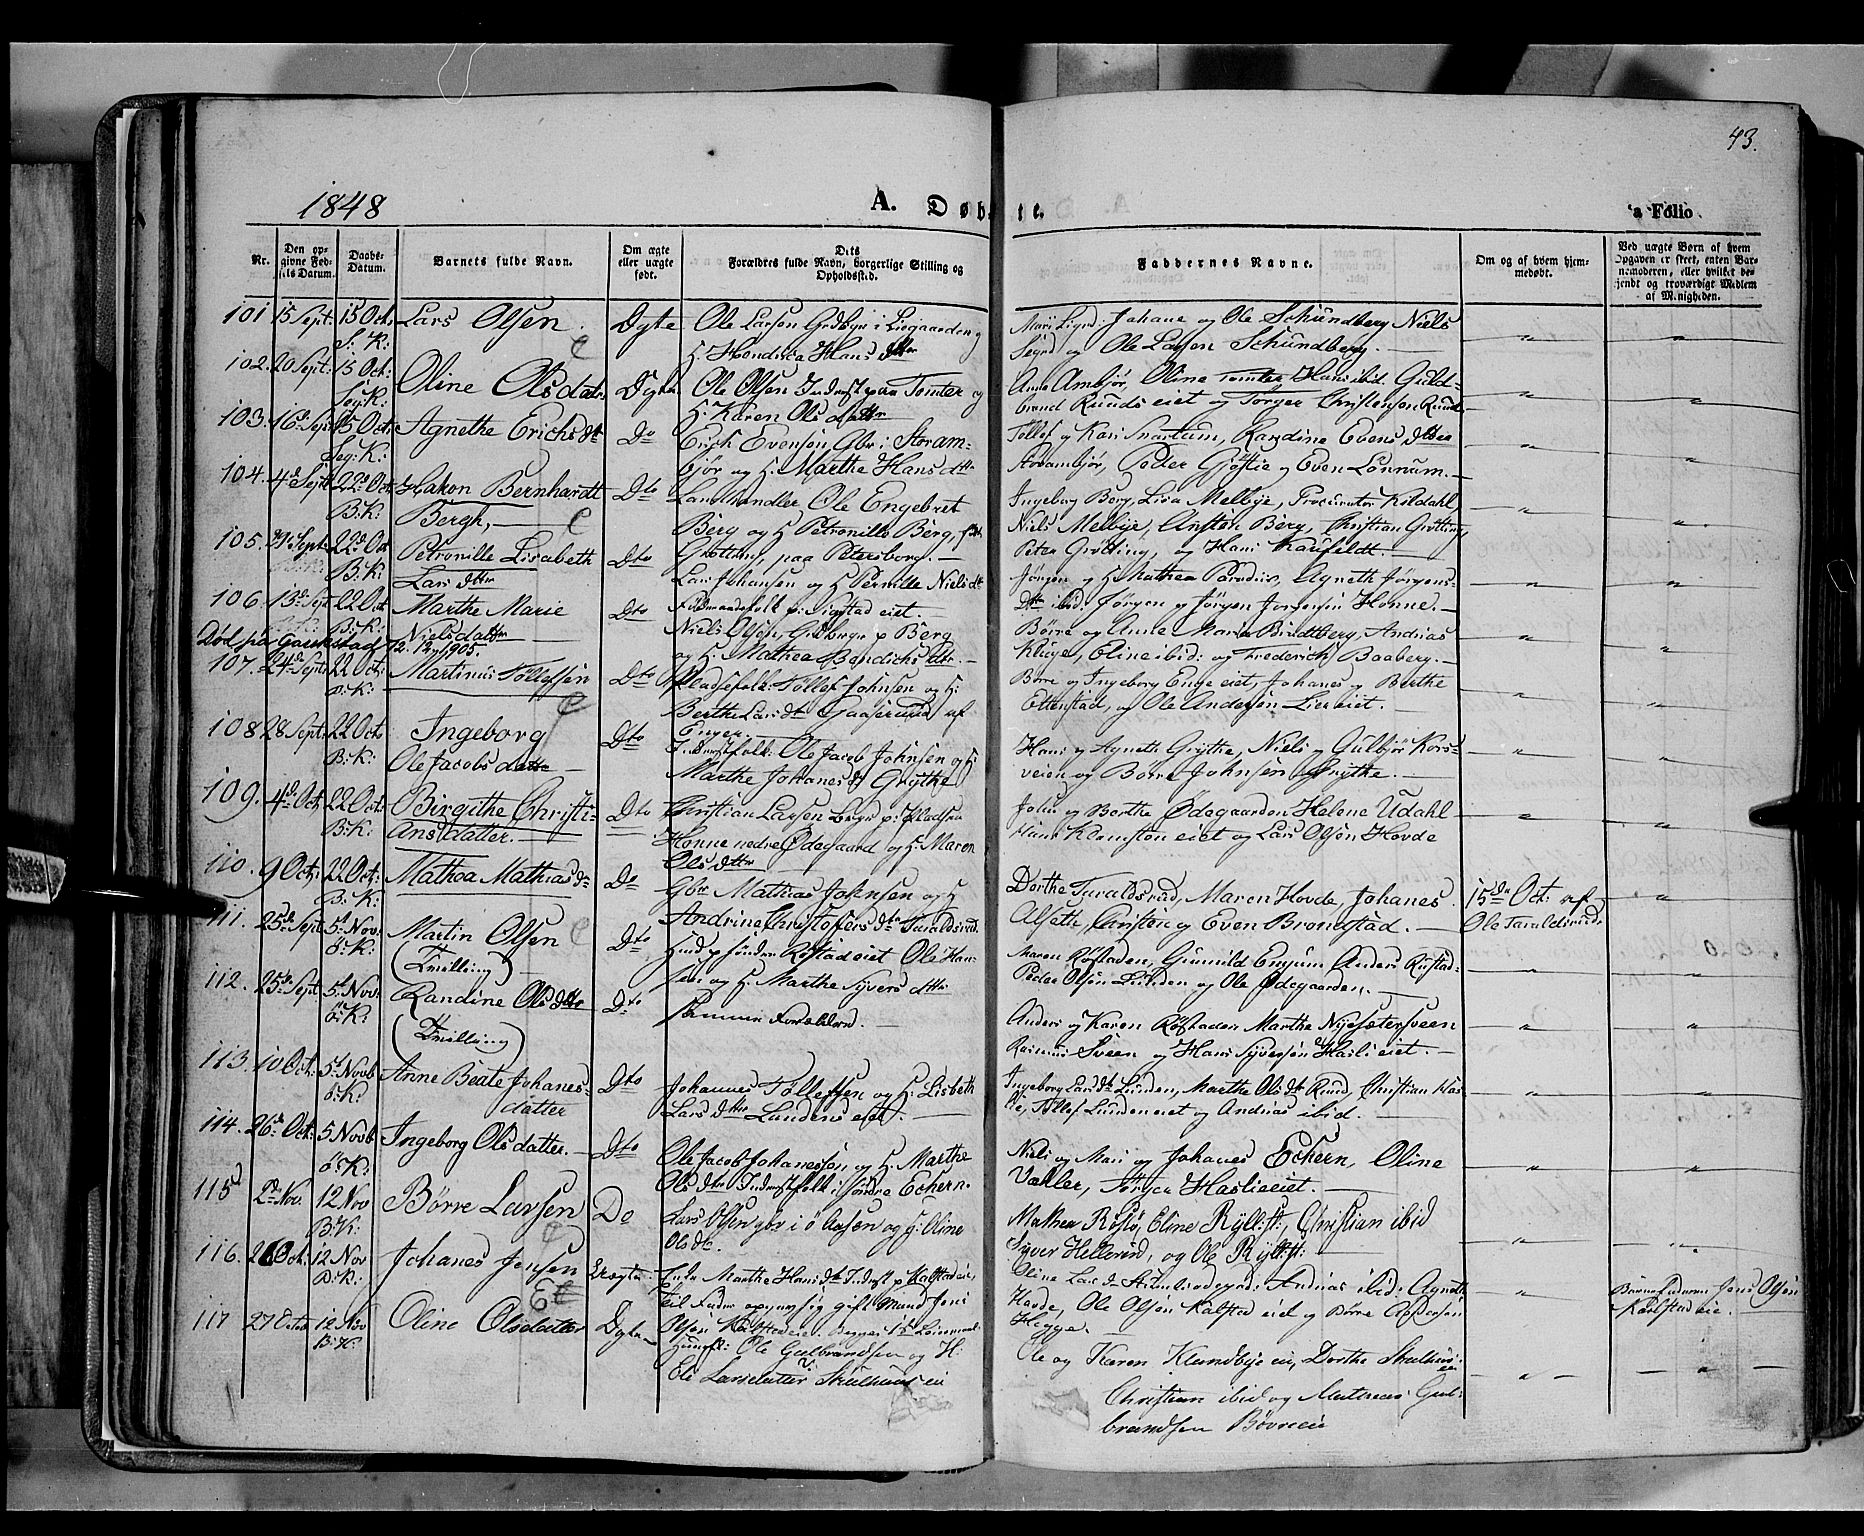 43.
1848
A. Døb te.
a Folio
Nr.
Den opgivne Fødsels Datum.
Daabs-Datum.
Barnets fulde Navn.
Om ægte eller uægte født.
Dets Forældres fulde Navn, borgerlige Stilling og Opholdssted.
Faddernes Navne.
Om og af hvem hjemmedøbt.
Ved uægte Børn af hvem Opgaven er skeet, enten Barnemoderen, eller hvilket betjendt og troværdigt Medlem af Menigheden.
101 15 Sept: 15 Oct: Lars Olsen. Dgte Ole Larsen Grdbgr i og
S: K: H: Hans dttr
Johane og Ole Schundberg Niels
og Ole Larsen Schundberg.
102. 20 Sept: 15 Oct: Oline Olsdatr Ole Olsen Inderst paa Tomter og
H: Karen Ols dattr
Anne Ambjør, Oline Tomter, Hans ibid. Guld-
brand Runds eiet og Torger Christensen Rund
103. 16 Sept 15 Oct: Agnethe Erichs dt Do Erich Evensen Gbr: i Storam-
bjør og H: Marthe Hans dttr
Tollef og Kari Snartum, Randine Evens dttr
Storambjør, Peder og Even Lonnum.
104. 4d Sept 22d Oct Hakon Bernhardt Dto Landhandler Ole Engebret
B: K: Bergh, Berg og H: Petronille Berg, født
Grøtting, paa Petersborg.
Ingeborg Berg, Lisa Melbye, Procurator Kildahl,
Niels Melbye, Berg, Christian Grøtting,
Peter Grøtting, og Hans Kaufeldt.
105. Sept: 22d Oct Petronille Lisabeth Dto Lars Johansen og H: Pernille Niels dt
B: K: Lars dttr eiet.
Jørgen og H: Mathea, Agneth Jørgens-
dttr ibid. Jørgen og Jørgen Honne.
106. 13d Sept 22 Oct Marthe Marie Dto Niels Olsen, Grdbrgr p Berg
B: K: Nielsdattr og H: Mathea Bendichs dtr.
Død på Gaukstad 12. 1905.
Børre og Anne Maria Bindtberg, Andrias
Kluge, Eline ibid: og Frederich Baaberg.
107. 24d Sept 22 Oct: Martinus Tollefsen Dto Pladsefolk: Tollef Johnsen og H:
B: K: Berthe Lars dtr af
Enger.
Børre og Ingeborg Enge eiet, Johanes og Berthe
Ettestad, og Ole Andersen Lier eiet.
108 28 Sept: 22 Octo Ingeborg Dto Inderstfolk: Ole Jacob Johnsen og H:
B: K: Ole Jacobs datter Marthe Johanes dt Grythe
Hans og Agneth Grythe, Niels og Gulbjør Kors-
veien og Børre Johnsen Grythe.
109. 4d Oct, 22 Oct: Birgithe Christi- Dto Christian Larsen p: Pladsen
B: K: ansdatter. Honne nedre Ødegaard og H: Maren
Ols dttr
John og Berthe Ødegaarden Helene Udahl
Hans eiet og Lars Olsen Hovde
110. 9 Oct: 22 Oct: Mathea Mathias dtr Do Gbr Mathias Johnsen og H
B: K: Andrine Christoffers dtr Taraldsrud.
Dorthe Taraldsrud, Maren Hovde, Johanes
Alseth, Christen og Even Brondstad.
15de Oct: af
Ole Taraldsrud.
111. 25de Sept 5t Nov: Martin Olsen Dto p søndre Røstad eiet Ole Han-
ø: K: (Tvilling) sen og H: Marthe Syvers dttr
Maren Røstaden, Gunnild Enjum Anders Røstad-
Peder Olsen Lunden og Ole Ødegaarden.
112. 25de Sept 5t Nov: Randine Ols dttr Dto samme Forældre.
ø: K: (Tvilling)
Anders og Karen Røstaden Marthe Nysætersveen
Rasmus Sveen og Hans Syversen Hasli eiet.
113. 10 Oct: 5t Novb Anne Beate Johanes- Dto Johannes Tollefsen og H: Lisbeth
ø: K: datter Lars dttr Lundens eiet.
Ingeborg Lars dt Lunden, Marthe Ols dt Rund, Christian Has-
lie, Tollef Lunden eiet og Andrias ibid.
114. 26d Oct: 5 Novb Ingeborg Olsdatter. Dto Ole Jacob Johanessen og H: Marthe
ø: K: Ols dtr Inderstfolk i søndre Echern.
Niels og Mari og Johanes Echern, Oline
Vahler, Jørgen Haslieeiet.
115 2de Nov. 12 Nov Børre Larsen Do Lars Olsen gbr i ø Aasen og H: Oline
B: K: Ols dtr.
Mathea Røsby, Eline Ryllst:, Christian ibid
Syver Hellerud, og Ole Ryllst:
116. 26 Oct: 12 Nov Johanes Jensen Uægte. Enke Marthe Hans dtr Inderst p Kalstadeie,
B: K: Til Fader opgives sig gift Mand Jens
Olsen Kalstadeie. Begges 1ste Leiermaal
Oline Lars d: Andrias ibid: Agnethe
Hovde, Ole Olsen Kalstad eid og Børre Andersen
Hegge.
Barnefaderen Jens Olsen
Kalstad eie.
117 27 Octob 12 Nov Oline Olsdatter Dgte Huusf: Ole Gulbrandsen og H:
B: K: Eli Larsdatter Skulhuus ei
Ole og Karen Klundbye ei, Dorthe Skulhus:
Christian ibid og Mathias Gul-
brandsen Børreeie